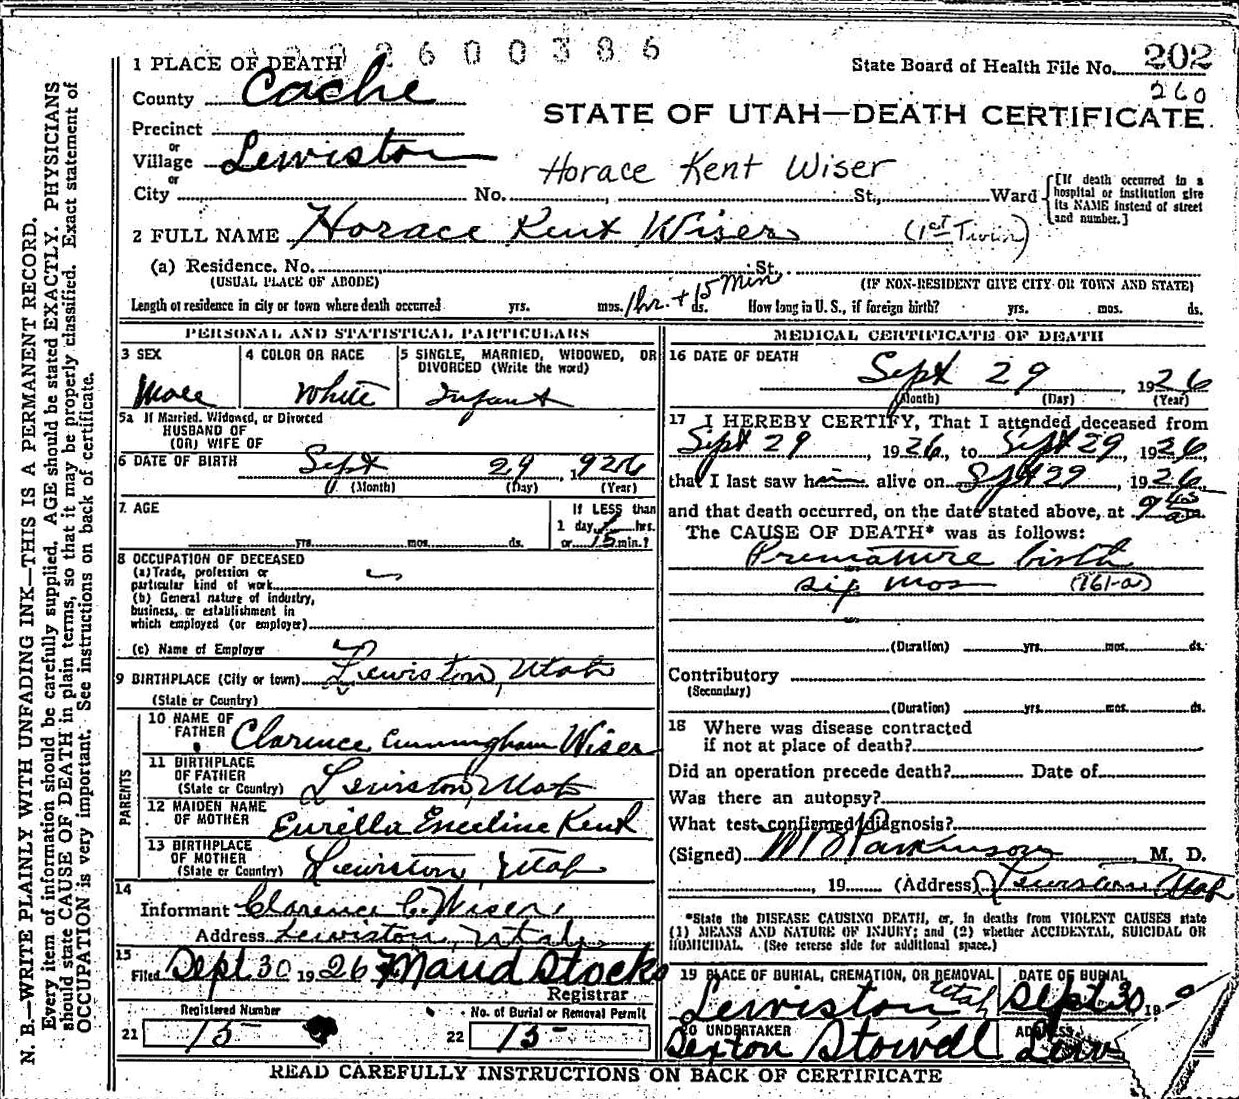 2600386
202
260
1 PLACE OF DEATH
State Board of Health File No.
County Cache
STATE OF UTAH—DEATH CERTIFICATE.
Precinct
or
Village Lewiston
or
Horace Kent Wiser
City No. St., Ward
[If death occurred in a hospital or institution give its NAME instead of street and number.]
2 FULL NAME Horace Kent Wiser (1st Twin)
(a) Residence. No. St.
(USUAL PLACE OF ABODE) (IF NON-RESIDENT GIVE CITY OR TOWN AND STATE)
Length of residence in city or town where death occurred yrs. mos. 1 hr. + 15 Min ds. How long in U. S., if foreign birth? yrs. mos. ds.
PERSONAL AND STATISTICAL PARTICULARS
3 SEX
Male
4 COLOR OR RACE
White
5 SINGLE, MARRIED, WIDOWED, OR
DIVORCED (Write the word)
Infant
5a If Married, Widowed, or Divorced
HUSBAND OF
(OR) WIFE OF
6 DATE OF BIRTH Sept 29, 1926
(Month) (Day) (Year)
7 AGE
yrs. mos. ds.
If LESS than
1 day, 1 hrs.
or 15 min.?
8 OCCUPATION OF DECEASED
(a) Trade, profession or
particular kind of work
(b) General nature of industry,
business, or establishment in
which employed (or employer)
(c) Name of Employer
9 BIRTHPLACE (City or town) Lewiston, Utah
(State or Country)
PARENTS
10 NAME OF
FATHER Clarence Cunningham Wiser
11 BIRTHPLACE
OF FATHER
(State or Country) Lewiston, Utah
12 MAIDEN NAME
OF MOTHER Eurilla Emeline Kent
13 BIRTHPLACE
OF MOTHER
(State or Country) Lewiston, Utah
14
Informant Clarence C. Wiser
Address Lewiston, Utah
15
Filed Sept 30 1926 Maud Stocks
Registrar
Registered Number
21 15
No. of Burial or Removal Permit
22 15
MEDICAL CERTIFICATE OF DEATH
16 DATE OF DEATH
Sept 29 1926
(Month) (Day) (Year)
17 I HEREBY CERTIFY, That I attended deceased from
Sept 29, 1926, to Sept 29, 1926,
that I last saw him alive on Sept 29, 1926
and that death occurred, on the date stated above, at 9
The CAUSE OF DEATH* was as follows:
Premature birth
six mos (161-a)
(Duration) yrs. mos. ds.
Contributory
(Secondary)
(Duration) yrs. mos. ds.
18 Where was disease contracted
if not at place of death?
Did an operation precede death? Date of
Was there an autopsy?
What test confirmed diagnosis?
(Signed) Parkinson M. D.
, 19 (Address) Lewiston Utah
*State the DISEASE CAUSING DEATH, or, in deaths from VIOLENT CAUSES state
(1) MEANS AND NATURE OF INJURY; and (2) whether ACCIDENTAL, SUICIDAL OR
HOMICIDAL. (See reverse side for additional space.)
19 PLACE OF BURIAL, CREMATION, OR REMOVAL
Lewiston, Utah
DATE OF BURIAL
Sept 30 19
20 UNDERTAKER
Sexton Stowell
ADDRESS
Lew
READ CAREFULLY INSTRUCTIONS ON BACK OF CERTIFICATE
N. B.—WRITE PLAINLY WITH UNFADING INK—THIS IS A PERMANENT RECORD.
Every item of information should be carefully supplied. AGE should be stated EXACTLY. PHYSICIANS
should state CAUSE OF DEATH in plain terms, so that it may be properly classified. Exact statement of
OCCUPATION is very important. See instructions on back of certificate.